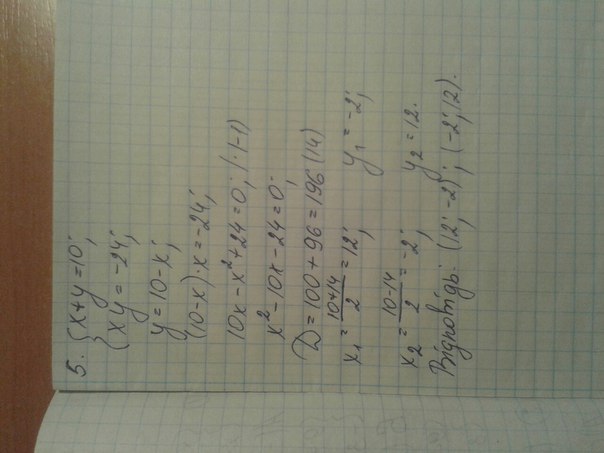 5. { x+y=10;
{ xy=-24;
y=10-x;
(10-x)·x=-24;
10x-x²+24=0; (·(-1)
x²-10x-24=0;
D=100+96=196 (14)
x₁ = (10+14)/2 = 12; y₁ = -2;
x₂ = (10-14)/2 = -2; y₂ = 12.
Відповідь: (12; -2); (-2; 12).